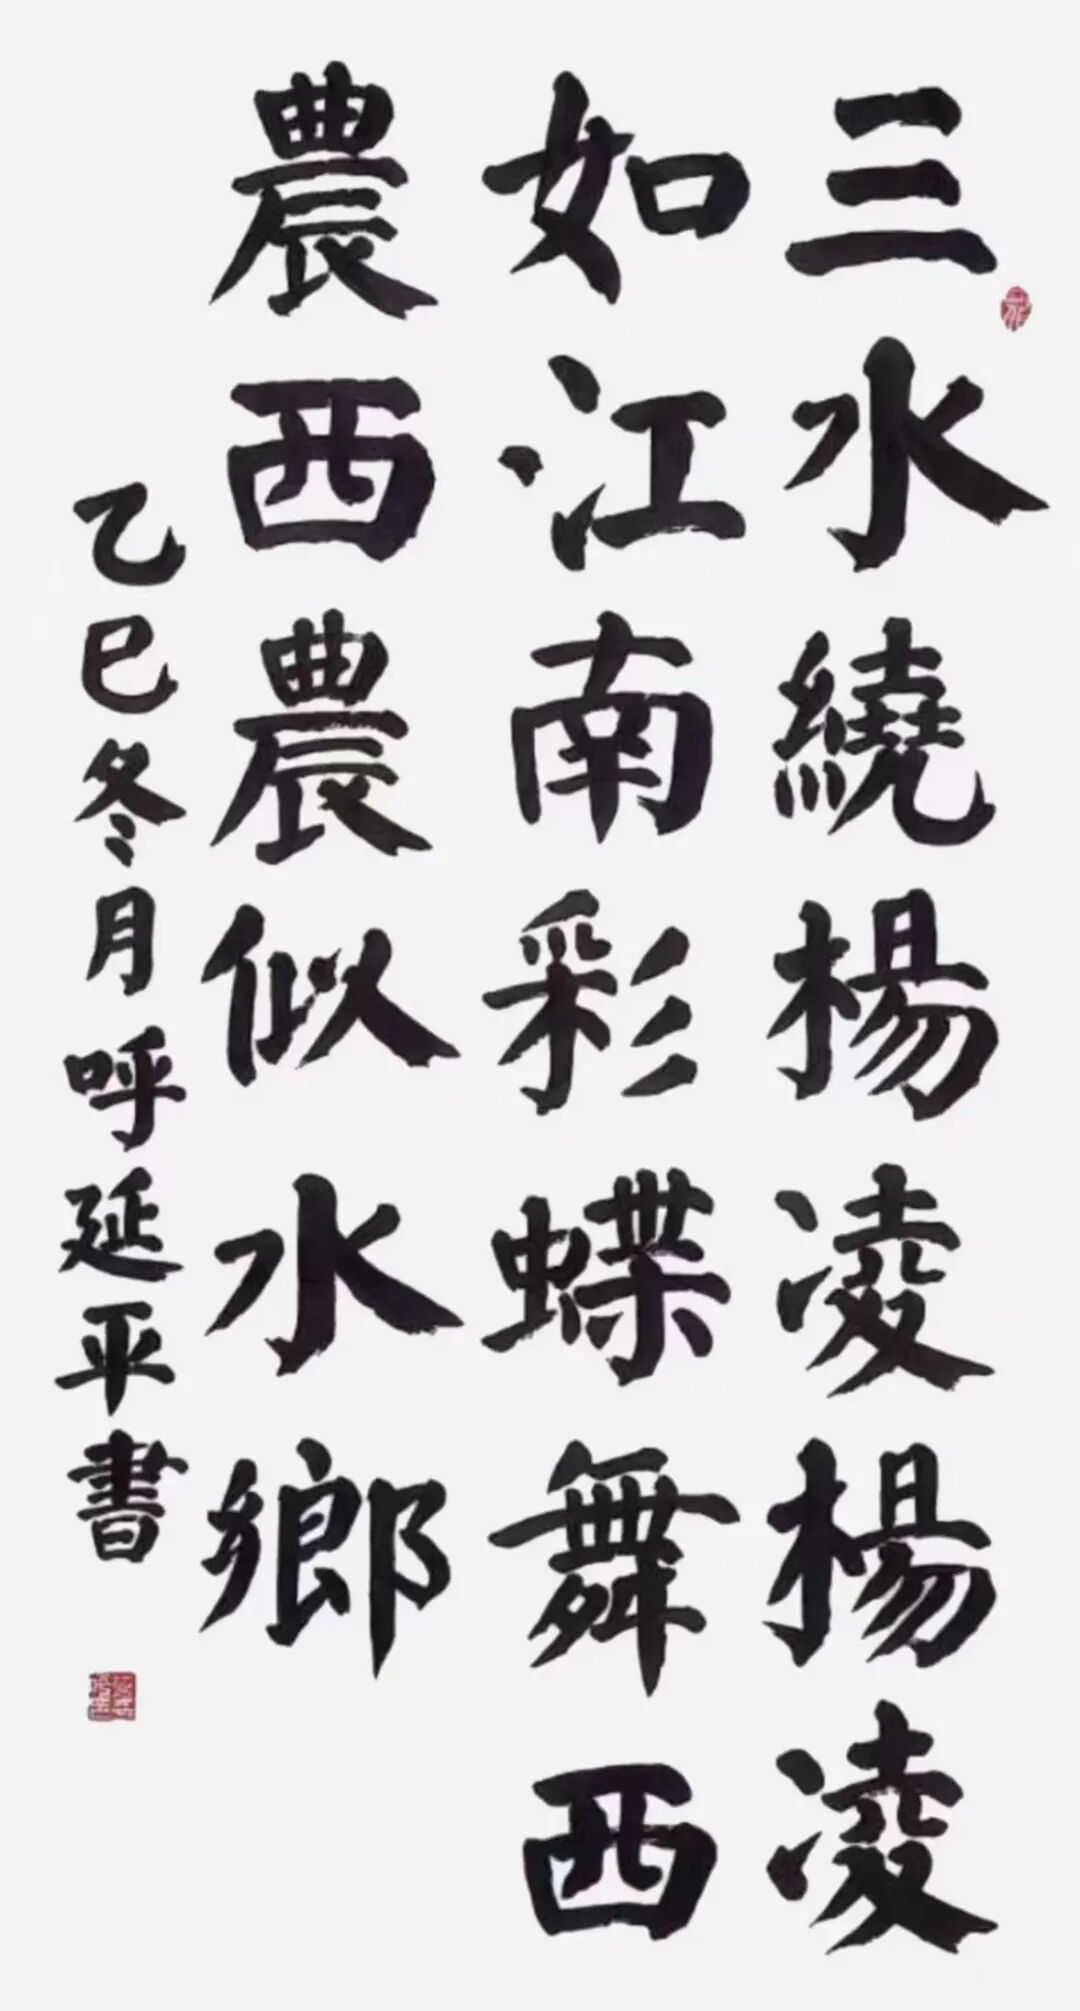 三水繞楊凌楊凌
如江南彩蝶舞西
農西農似水鄉
乙巳冬月呼延平書